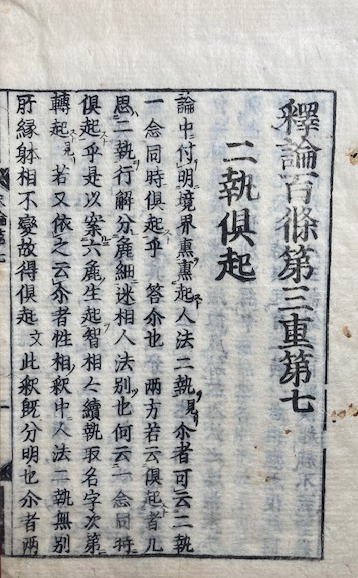 釋論百條第三重第七
二執俱起
論中付明境界熏熏起人法二執見尓者可云二執
一念同時俱起乎 答尓也 兩方若云俱起者凡
思二執行解分麁細迷相人法別也何云一念同時
俱起乎是以案六麁生起智相〻續執取名字次第
轉起見 若又依之云尓者性相釈中人法二執無別
肝縁躰相不變故得俱起文 此釈既分明也尓者兩